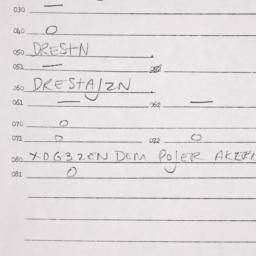 030 —
040 O
050 DRESTN
051 — 052
060 DRESTAJZN
061 — 062 —
070 O
071 O 072 O
080 XOG3ZEN DEM POJER AKERI
081 O